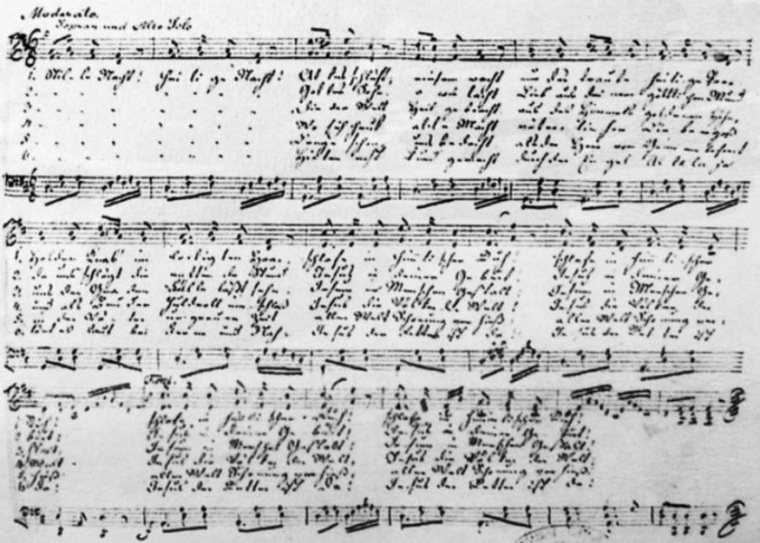 Moderato.
Sopran und Alto Solo
1. Stille Nacht! heilige Nacht! Alles schläft; einsam wacht nur das traute heilige Paar.
2. Gottes Sohn o wie lacht Lieb aus deinem göttlichen Mund
3. die der Welt Heil gebracht aus des Himmels goldenen Höhn
4. Wo sich heut alle Macht
5. Lange schon uns bedacht als der Herr vom Grimme befreit
6. Hirten erst kund gemacht durch der Engel Alleluja
1. Holder Knab im lockigten Haar, schlafe in himmlischer Ruh! schlafe in himmlischer
2. da uns schlägt die rettende Stund Jesus in deiner Geburt! Jesus in deiner Ge
3. uns der Gnaden Fülle läßt sehn Jesum in Menschengestalt Jesum in Menschen Ge
4. und als Bruder huldvoll umschloß Jesus die Völker der Welt! Jesus die Völker der
5. in der Väter urgrauer Zeit aller Welt Schonung verhieß aller Welt Schonung ver
6. Tönt es laut bei Ferne und Nah Jesus der Retter ist da Jesus der Retter ist
Ruh! schlafe in himmlischer Ruh! schlafe in himmlischer Ruh!
burt! Jesus in deiner Geburt! Jesus in deiner Geburt!
stalt Jesum in Menschengestalt! Jesum in Menschengestalt!
4 Welt Jesus die Völker der Welt! Jesus die Völker der Welt!
5 hieß aller Welt Schonung verhieß! aller Welt Schonung verhieß!
6 da! Jesus der Retter ist da! Jesus der Retter ist da!